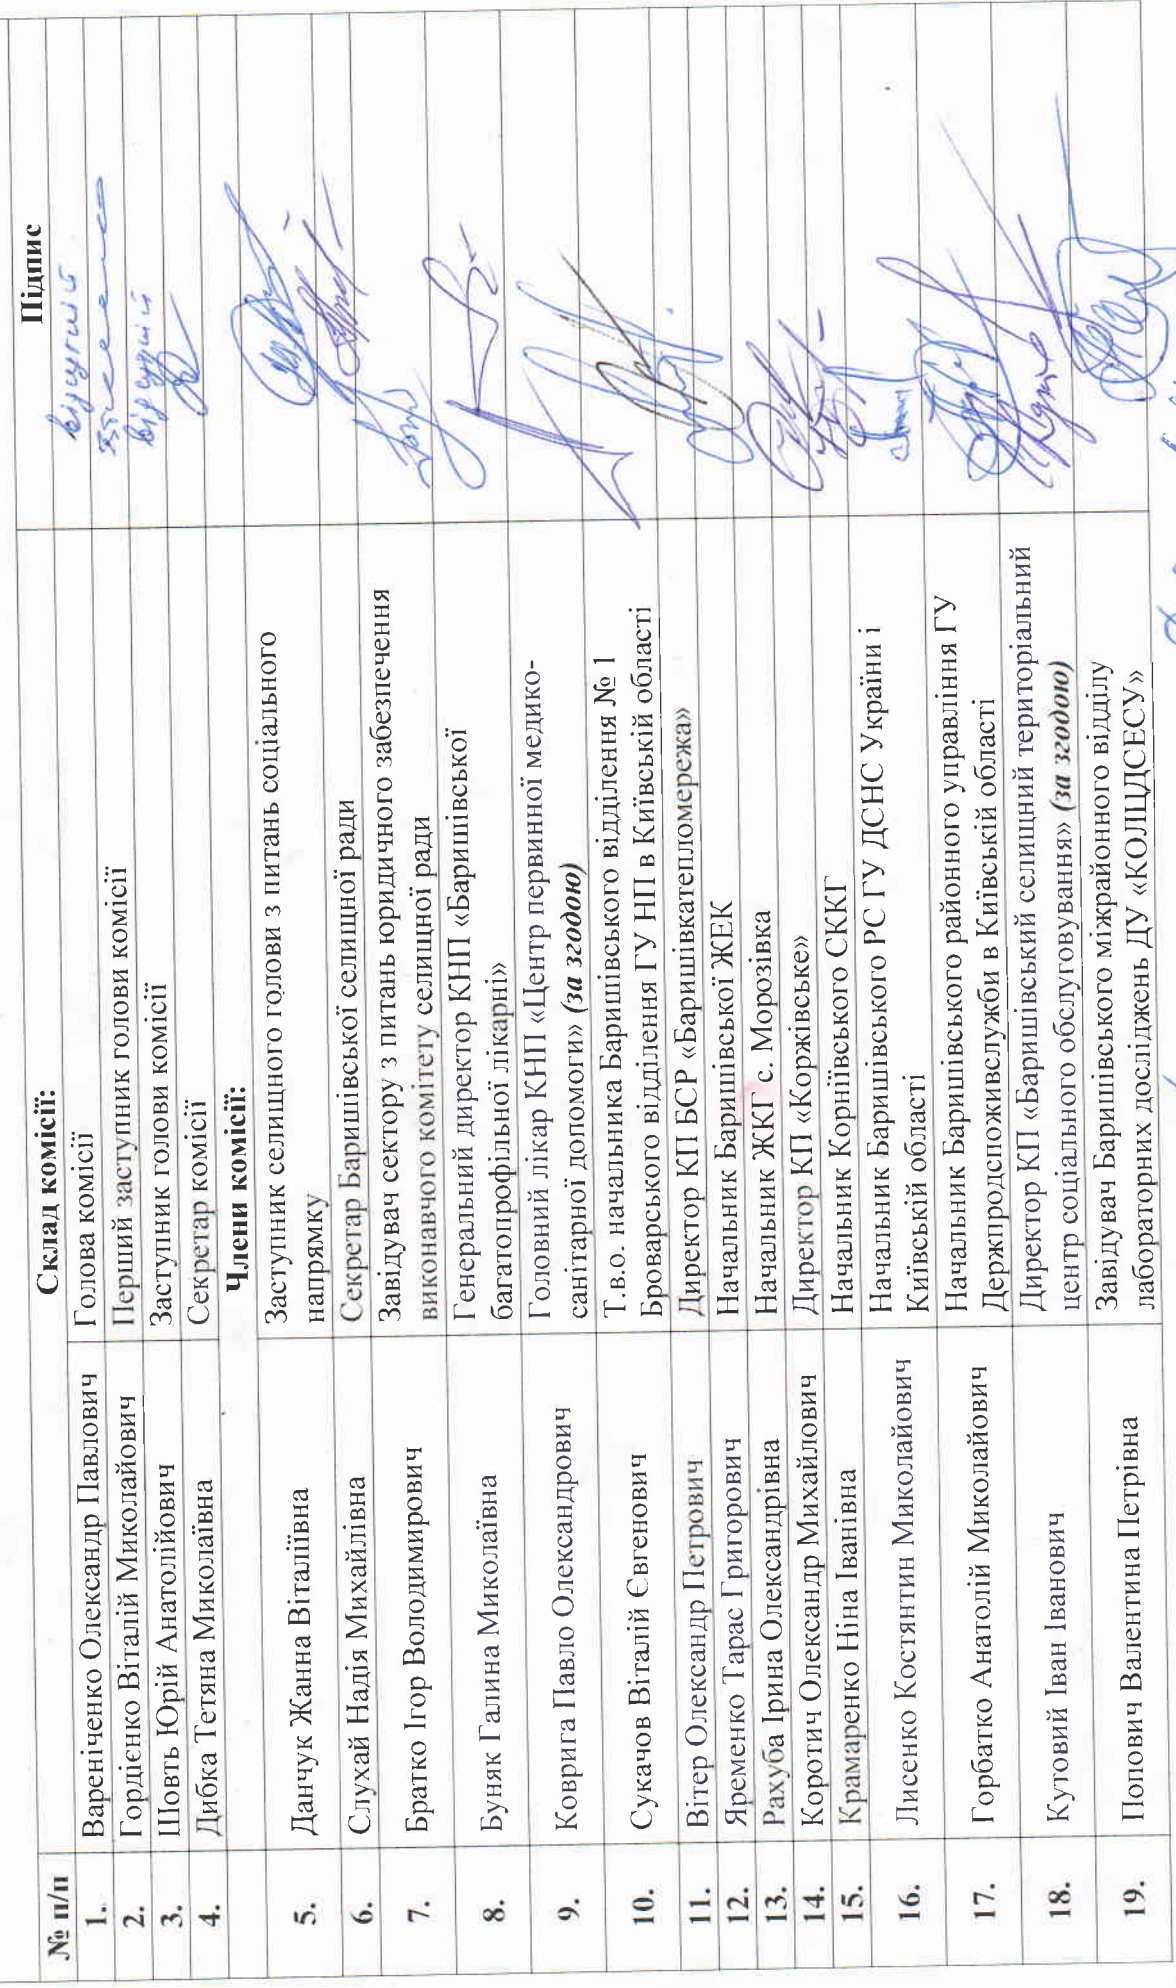 № п/п Склад комісії: Підпис
1. Вареніченко Олександр Павлович Голова комісії відсутній
2. Гордієнко Віталій Миколайович Перший заступник голови комісії
3. Шовть Юрій Анатолійович Заступник голови комісії відсутній
4. Дибка Тетяна Миколаївна Секретар комісії
Члени комісії:
5. Данчук Жанна Віталіївна Заступник селищного голови з питань соціального
напрямку
6. Слухай Надія Михайлівна Секретар Баришівської селищної ради
7. Братко Ігор Володимирович Завідувач сектору з питань юридичного забезпечення
виконавчого комітету селищної ради
8. Буняк Галина Миколаївна Генеральний директор КНП «Баришівської
багатопрофільної лікарні»
9. Коврига Павло Олександрович Головний лікар КНП «Центр первинної медико-
санітарної допомоги» (за згодою)
10. Сукачов Віталій Євгенович Т.в.о. начальника Баришівського відділення № 1
Броварського відділення ГУ НП в Київській області
11. Вітер Олександр Петрович Директор КП БСР «Баришівкатепломережа»
12. Яременко Тарас Григорович Начальник Баришівської ЖЕК
13. Рахуба Ірина Олександрівна Начальник ЖКГ с. Морозівка
14. Коротич Олександр Михайлович Директор КП «Коржівське»
15. Крамаренко Ніна Іванівна Начальник Корніївського СККГ
16. Лисенко Костянтин Миколайович Начальник Баришівського РС ГУ ДСНС України і
Київській області
17. Горбатко Анатолій Миколайович Начальник Баришівського районного управління ГУ
Держпродспоживслужби в Київській області
18. Кутовий Іван Іванович Директор КП «Баришівський селищний територіальний
центр соціального обслуговування» (за згодою)
19. Попович Валентина Петрівна Завідувач Баришівського міжрайонного відділу
лабораторних досліджень ДУ «КОЛЦДСЕСУ»